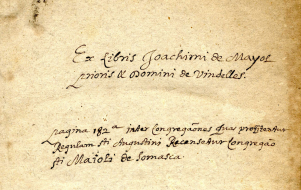 Ex Libris Joachimi de Mayol
prioris & Domini de Vindelles.
pagina 182ª inter Congregaões quæ profitentur
Regulam sti Augustini Recensetur Congregao
sti Maioli de Somasca.